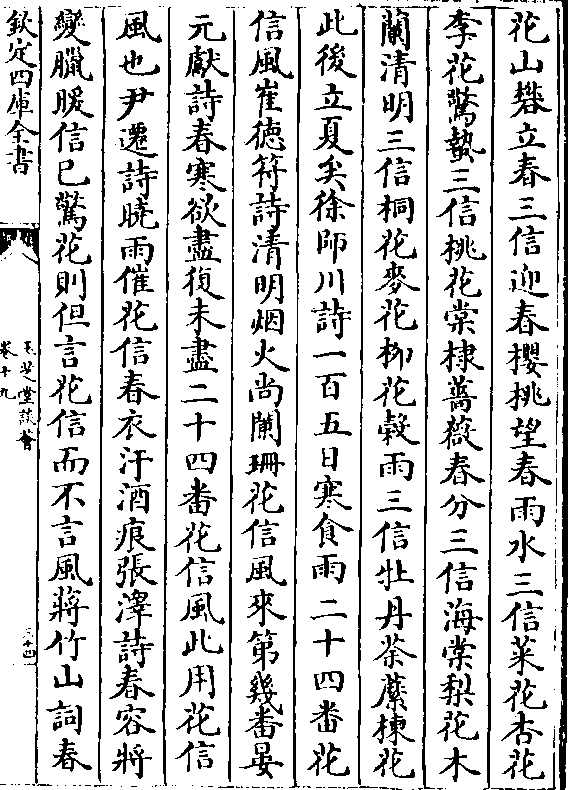 花山礬立春三信迎春櫻桃望春雨水三信菜花杏花
李花驚蟄三信桃花棠棣薔薇春分三信海棠梨花木
蘭清明三信桐花麥花柳花穀雨三信牡丹荼䕷楝花
此後立夏矣徐師川詩一百五日寒食雨二十四番花
信風崔徳符詩清明烟火尚闌珊花信風來第幾番晏
元獻詩春寒欲盡復未盡二十四番花信風此用花信
風也尹遷詩曉雨催花信春衣汙酒痕張澤詩春容將
變臘暖信已驚花則但言花信而不言風蔣竹山詞春
欽定四庫全書
玉芝堂談薈
卷十九